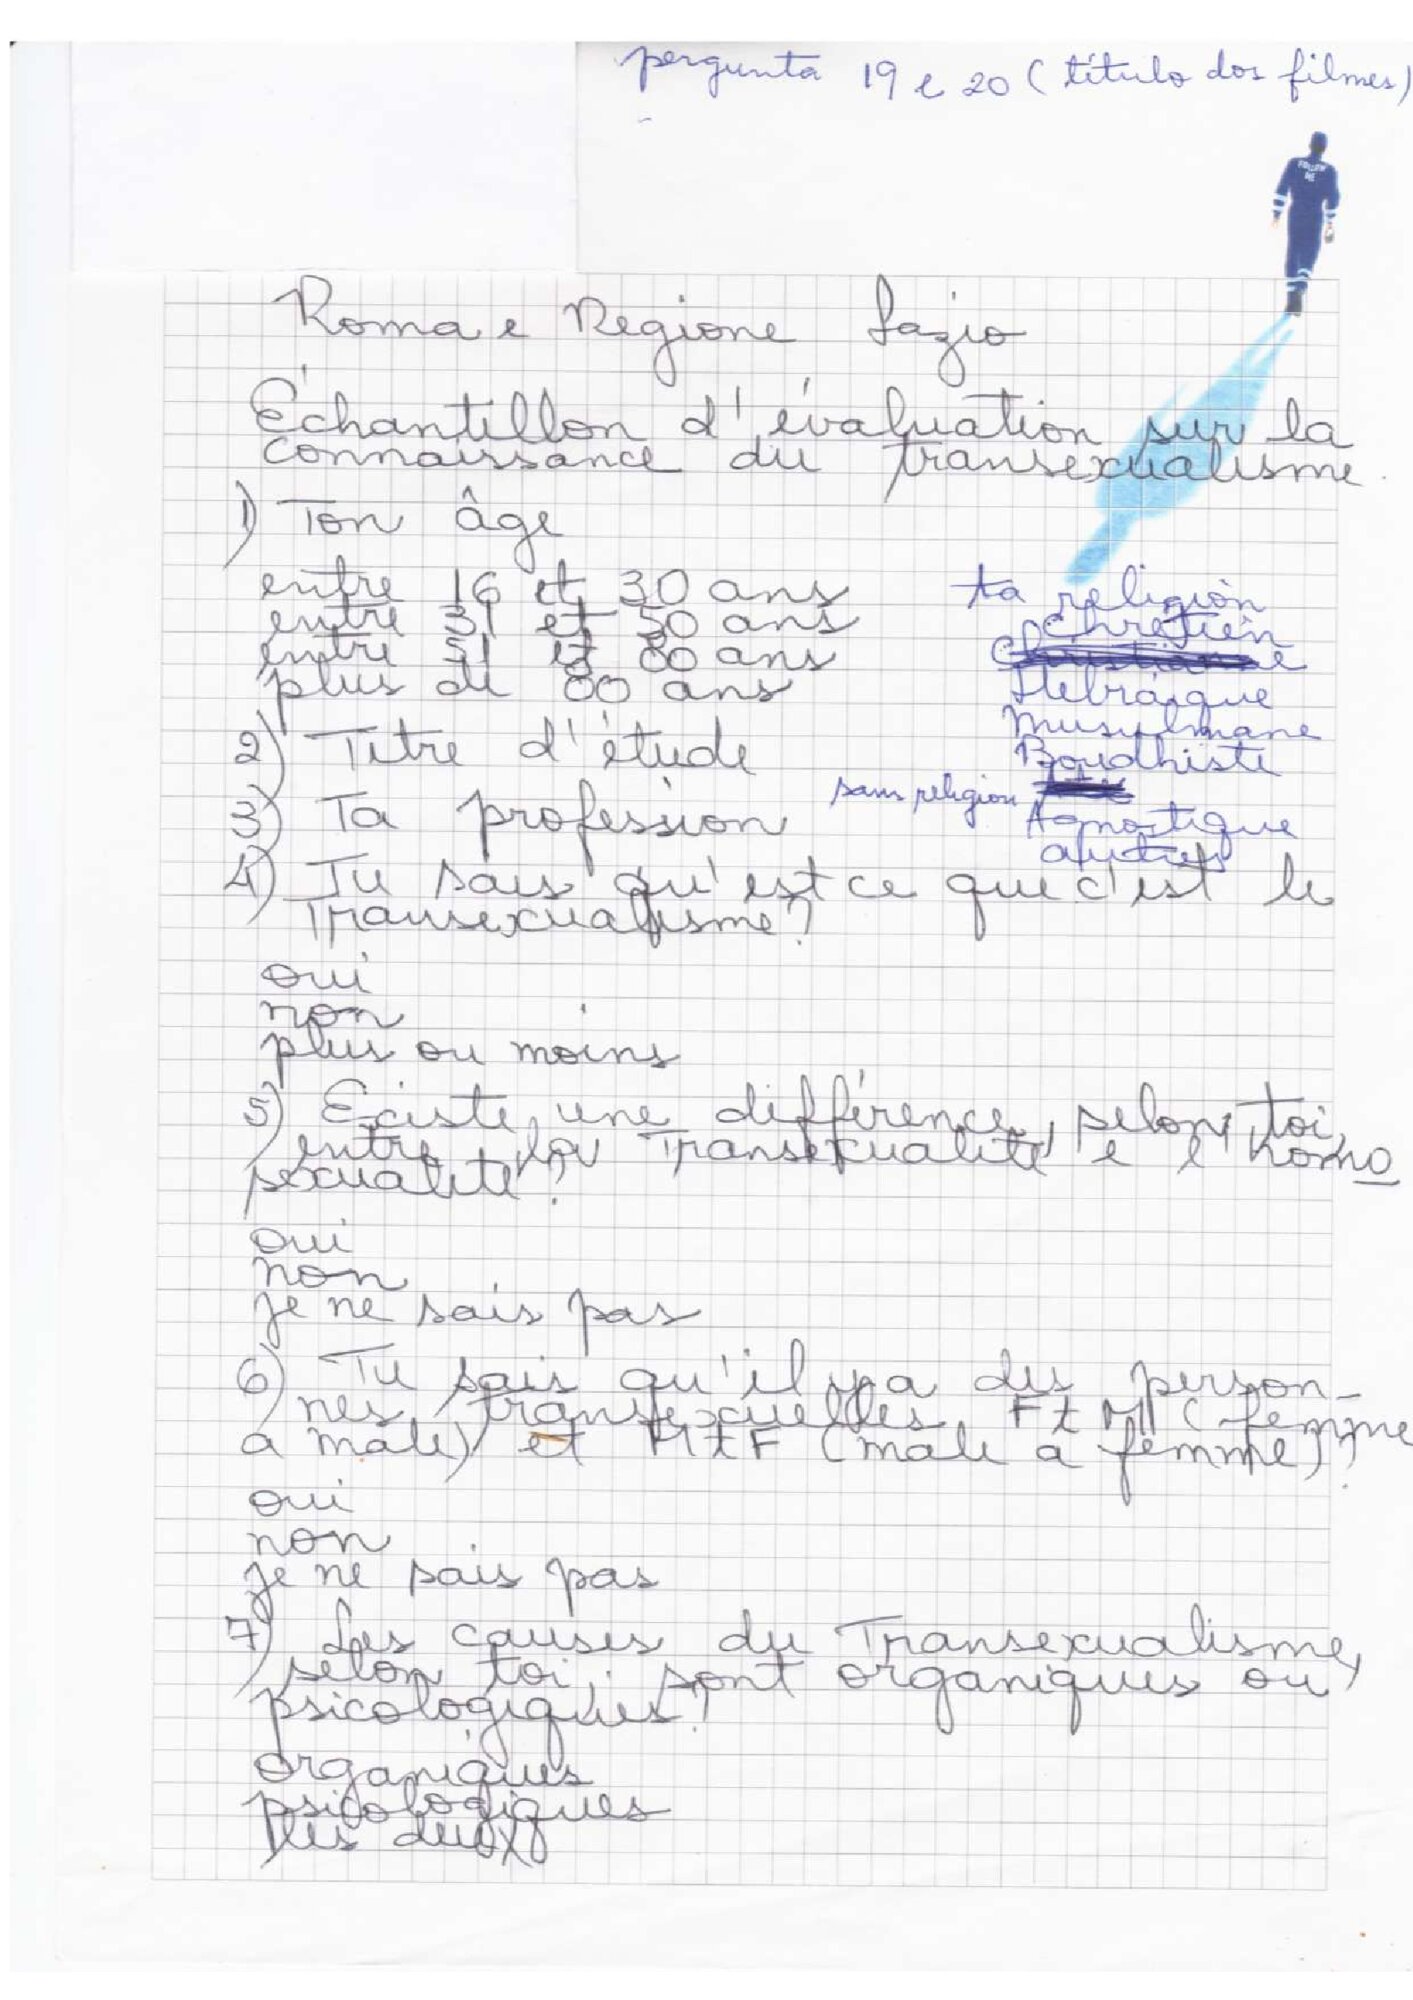 pergunta 19 e 20 (título dos filmes)
FOLLOW
ME
Roma e Regione Lazio
Échantillon d'évaluation sur la
connaissance du transexualisme.
1) Ton âge
entre 16 et 30 ans
entre 31 et 50 ans
entre 51 et 80 ans
plus de 80 ans
ta religion
Chrétien
Hebraique
Musulmane
Boudhiste
sans religion
Agnostique
autres
2) Titre d'étude
3) Ta profession
4) Tu sais qu'est ce que c'est le
Transexualisme?
oui
non
plus ou moins
5) Existe une différence, selon toi,
entre la Transexualité e l'homo
sexualité?
oui
non
je ne sais pas
6) Tu sais qu'il y a des person-
nes transexuelles FtM (femme
a male) et MtF (male a femme)?
oui
non
je ne sais pas
7) Les causes du Transexualisme,
selon toi, sont organiques ou
psicologiques?
organiques
psicologiques
les deux